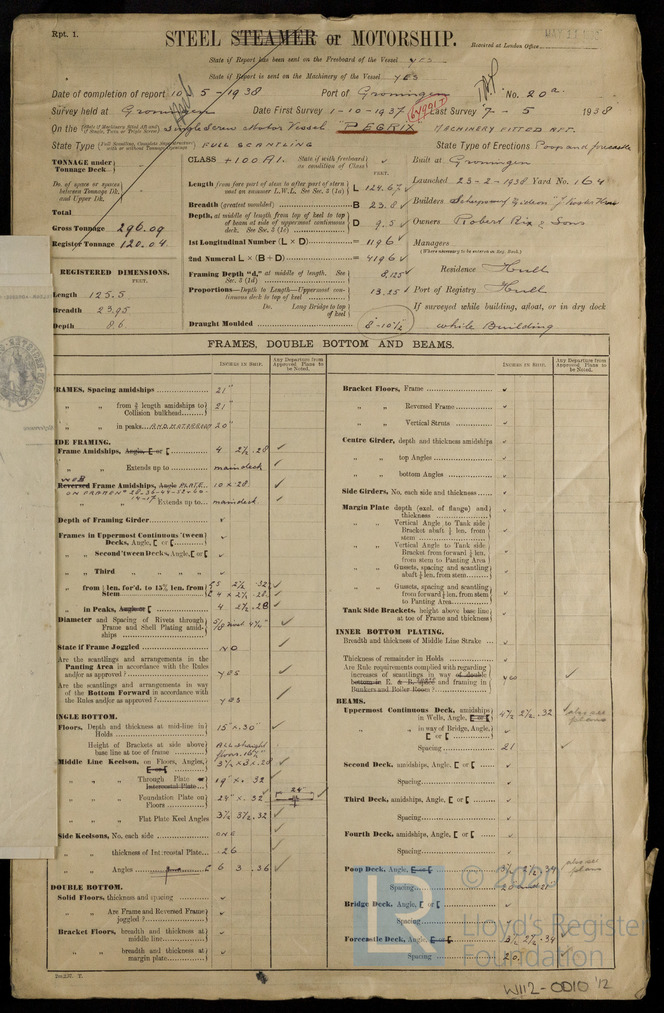 Rpt. 1.
STEEL STEAMER or MOTORSHIP.
MAY 11 1938
Received at London Office
State if Report has been sent on the Freeboard of the Vessel YES
State if Report is sent on the Machinery of the Vessel YES
Date of completion of report 10-5-1938 Port of Groningen No. 20a.
Survey held at Groningen Date First Survey 1-10-1937 Last Survey 7-5 1938
On the Single Screw Motor Vessel "PEGRIX" MACHINERY FITTED AFT.
State Type FULL SCANTLING State Type of Erections Poop and forecastle
TONNAGE under Tonnage Deck
Do. of space or spaces between Tonnage Dk. and Upper Dk.
Total
Gross Tonnage 296.09
Register Tonnage 120.04
REGISTERED DIMENSIONS.
FEET.
Length 125.5
Breadth 23.95
Depth 8.6
CLASS +100A1. State if with freeboard as condition of Class
FEET.
Length from fore part of stem to after part of stern post on summer L.W.L. See Sec. 3 (1a) L 124.67
Breadth (greatest moulded) B 23.8
Depth, at middle of length from top of keel to top of beam at side of uppermost continuous deck. See Sec. 3 (1c) D 9.5
1st Longitudinal Number (L × D) = 1196
2nd Numeral L × (B + D) = 4196
Framing Depth "d," at middle of length. See Sec. 3 (1d) 8.125
Proportions—Depth to Length—Uppermost continuous deck to top of keel 13.25
Do. Long Bridge to top of keel
Draught Moulded 8'-10½
Built at Groningen
Launched 23-2-1938 Yard No. 164
Builders Scheepswerf "Gideon"
Owners Robert Rix & Sons
Managers
(Where necessary to be entered in Reg. Book.)
Residence Hull
Port of Registry Hull
If surveyed while building, afloat, or in dry dock
while Building
FRAMES, DOUBLE BOTTOM AND BEAMS.
INCHES IN SHIP.
Any Departure from Approved Plans to be Noted.
INCHES IN SHIP.
Any Departure from Approved Plans to be Noted.
FRAMES, Spacing amidships 21"
" " from ⅗ length amidships to Collision bulkhead 21"
" " in peaks 20"
SIDE FRAMING.
Frame Amidships, Angle, [ or [ 4 2½ .28
" " Extends up to maindeck
WEB
Reversed Frame Amidships, Angle PLATE 10 × 28
" " Extends up to maindeck
Depth of Framing Girder
Frames in Uppermost Continuous 'tween Decks, Angle, [ or [
" " Second 'tween Decks, Angle, [ or [
" " Third " " " "
" from ⅕ len. for'd. to 15% len. from Stem
" in Peaks, Angle or [ 4 2½ .28
Diameter and Spacing of Rivets through Frame and Shell Plating amidships
State if Frame Joggled NO
Are the scantlings and arrangements in the Panting Area in accordance with the Rules and/or as approved? yes
Are the scantlings and arrangements in way of the Bottom Forward in accordance with the Rules and/or as approved? yes
SINGLE BOTTOM.
Floors, Depth and thickness at mid-line in Holds 15" × .30"
Height of Brackets at side above base line at toe of frame
Middle Line Keelson, on Floors, Angles, 3½ × 3 × 28
" " Through Plate or Intercostal Plate 19" × .32
" " Foundation Plate on Floors 24" × .32
24"
" " Flat Plate Keel Angles 3½ 3½ .32
Side Keelsons, No. each side ONE
" " thickness of Intercostal Plate .26
" " Angles 6 3 .36
DOUBLE BOTTOM.
Solid Floors, thickness and spacing
" " Are Frame and Reversed Frame joggled?
Bracket Floors, breadth and thickness at middle line
" " breadth and thickness at margin plate
Bracket Floors, Frame
" " Reversed Frame
" " Vertical Struts
Centre Girder, depth and thickness amidships
" " top Angles
" " bottom Angles
Side Girders, No. each side and thickness
Margin Plate depth (excl. of flange) and thickness
" " Vertical Angle to Tank side Bracket abaft ¼ len. from stem
" " Vertical Angle to Tank side Bracket from forward ¼ len. from stem to Panting Area
" " Gussets, spacing and scantling abaft ¼ len. from stem
" " Gussets, spacing and scantling from forward ¼ len. from stem to Panting Area
Tank Side Brackets, height above base line at toe of Frame and thickness
INNER BOTTOM PLATING.
Breadth and thickness of Middle Line Strake
Thickness of remainder in Holds
Are Rule requirements complied with regarding increases of scantlings in way of double bottom in E. & B. space and framing in Bunkers and Boiler Room? yes
BEAMS.
Uppermost Continuous Deck, amidships in Wells, Angle, [ or [ 4½ 2½ .32 also see plans
" " in way of Bridge, Angle, [ or [
Spacing 21
Second Deck, amidships, Angle, [ or [
Spacing
Third Deck, amidships, Angle, [ or [
Spacing
Fourth Deck, amidships, Angle, [ or [
Spacing
Poop Deck, Angle, [ or [ 3½ 2½ .34 also see plans
Spacing 20 and 21
Bridge Deck, Angle, [ or [
Spacing
Forecastle Deck, Angle, [ or [ 3½ 2½ .34
Spacing 20
© 2020
LR
Lloyd's Register
Foundation
W112-0010 1/2